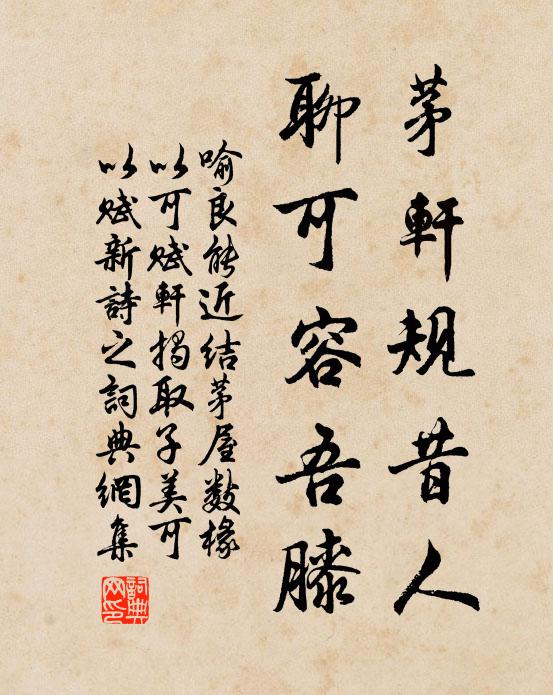 茅軒規昔人
聊可容吾膝
喻良能近结茅屋數椽
以可赋軒揭取子美可
以赋新詩之詞典網集
詞典
网印